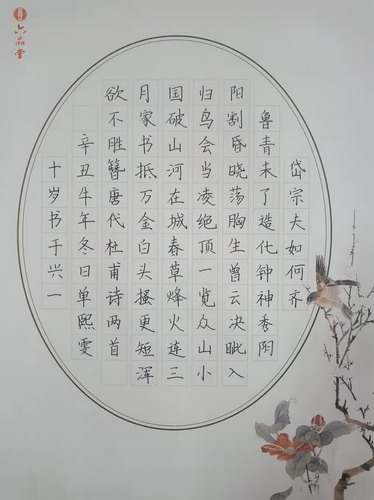 六品堂
岱宗夫如何齐
鲁青未了造化钟神秀阴
阳割昏晓荡胸生曾云决眦入
归鸟会当凌绝顶一览众山小
国破山河在城春草烽火连三
月家书抵万金白头搔更短浑
欲不胜簪唐代杜甫诗两首
辛丑牛年冬日单熙雯
十岁书于兴一